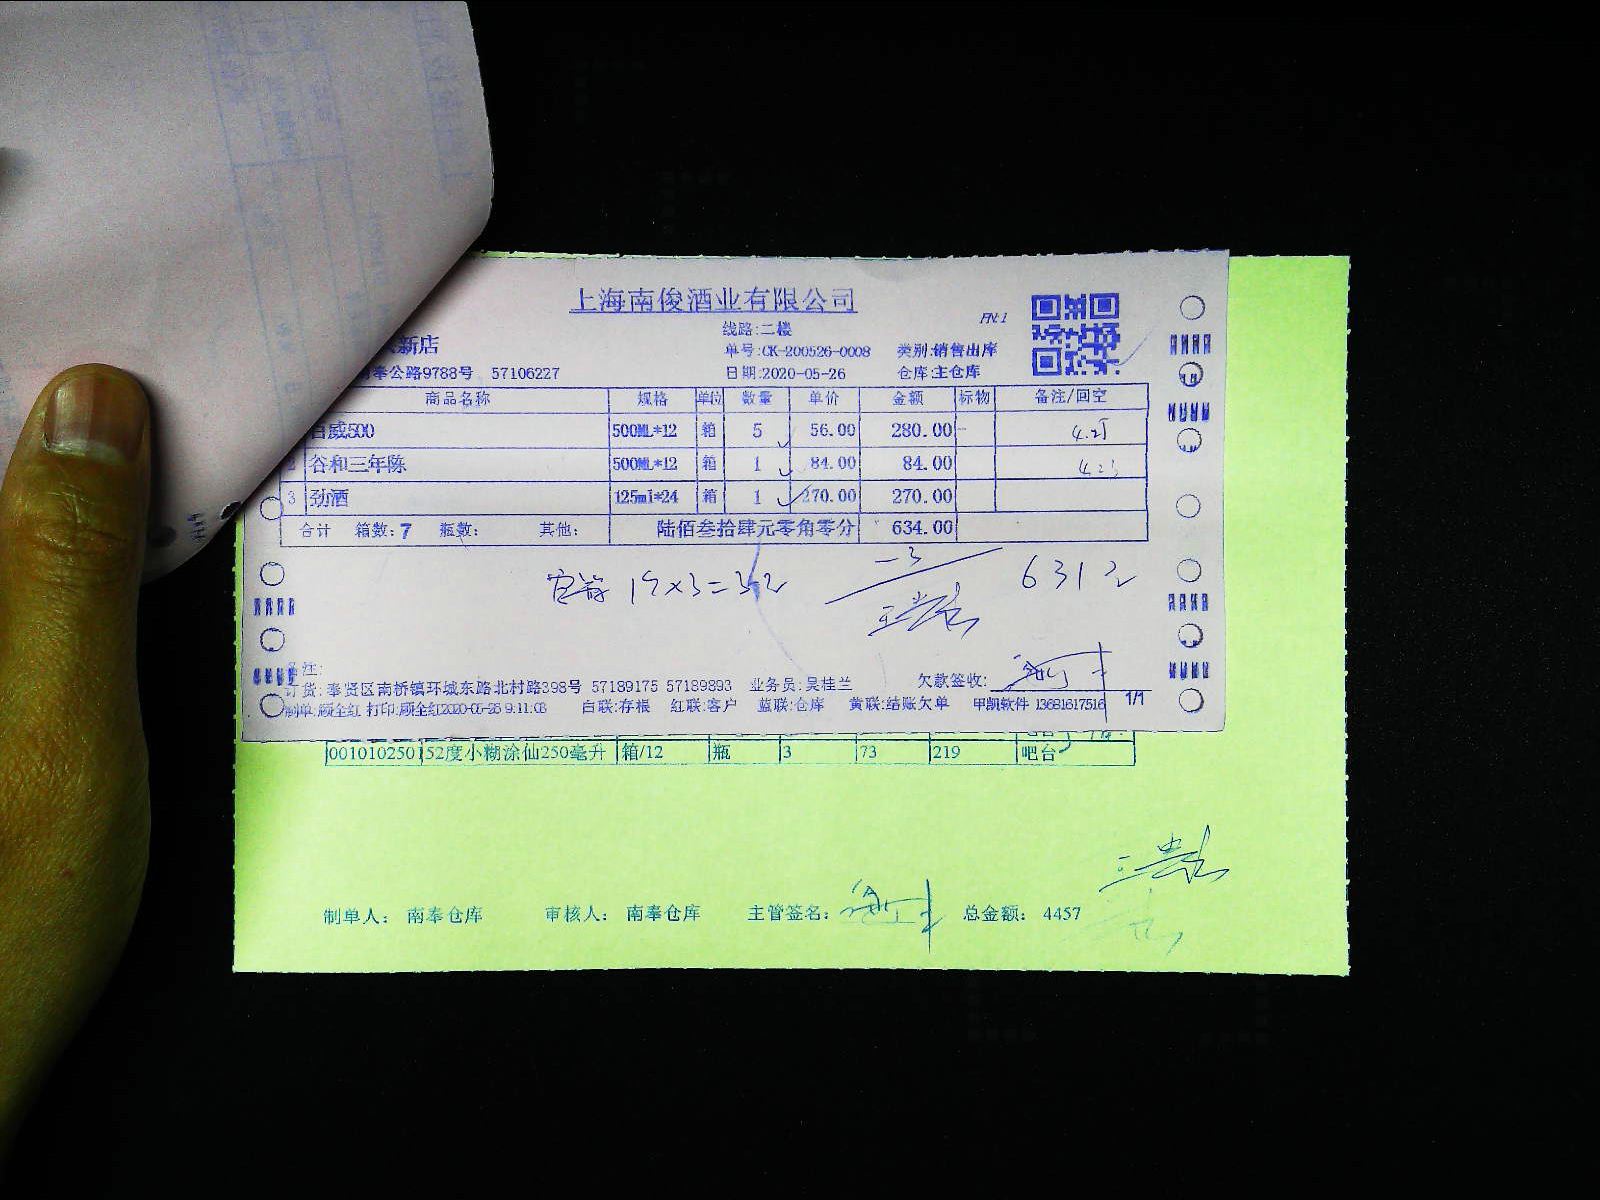 上海南俊酒业有限公司
PN:1
线路:二楼
新店
单号:CK-200526-0008 类别:销售出库
奉公路9788号 57106227
日期:2020-05-26 仓库:主仓库
商品名称 规格 单位 数量 单价 金额 标物 备注/回空
百威500 500ML*12 箱 5 56.00 280.00
2 谷和三年陈 500ML*12 箱 1 84.00 84.00
3 劲酒 125ml*24 箱 1 270.00 270.00
合计 箱数:7 瓶数: 其他: 陆佰叁拾肆元零角零分 634.00
-3
631元
备注:
订货:奉贤区南桥镇环城东路北村路398号 57189175 57189893 业务员:吴桂兰 欠款签收:
制单:顾全红 打印:顾全红2020-05-26 9:11:08 白联:存根 红联:客户 蓝联:仓库 黄联:结账欠单 甲凯软件 13681617516 1/1
001010250152度小糊涂仙250毫升 箱/12 瓶 3 73 219 吧台
制单人: 南奉仓库 审核人: 南奉仓库 主管签名: 总金额: 4457